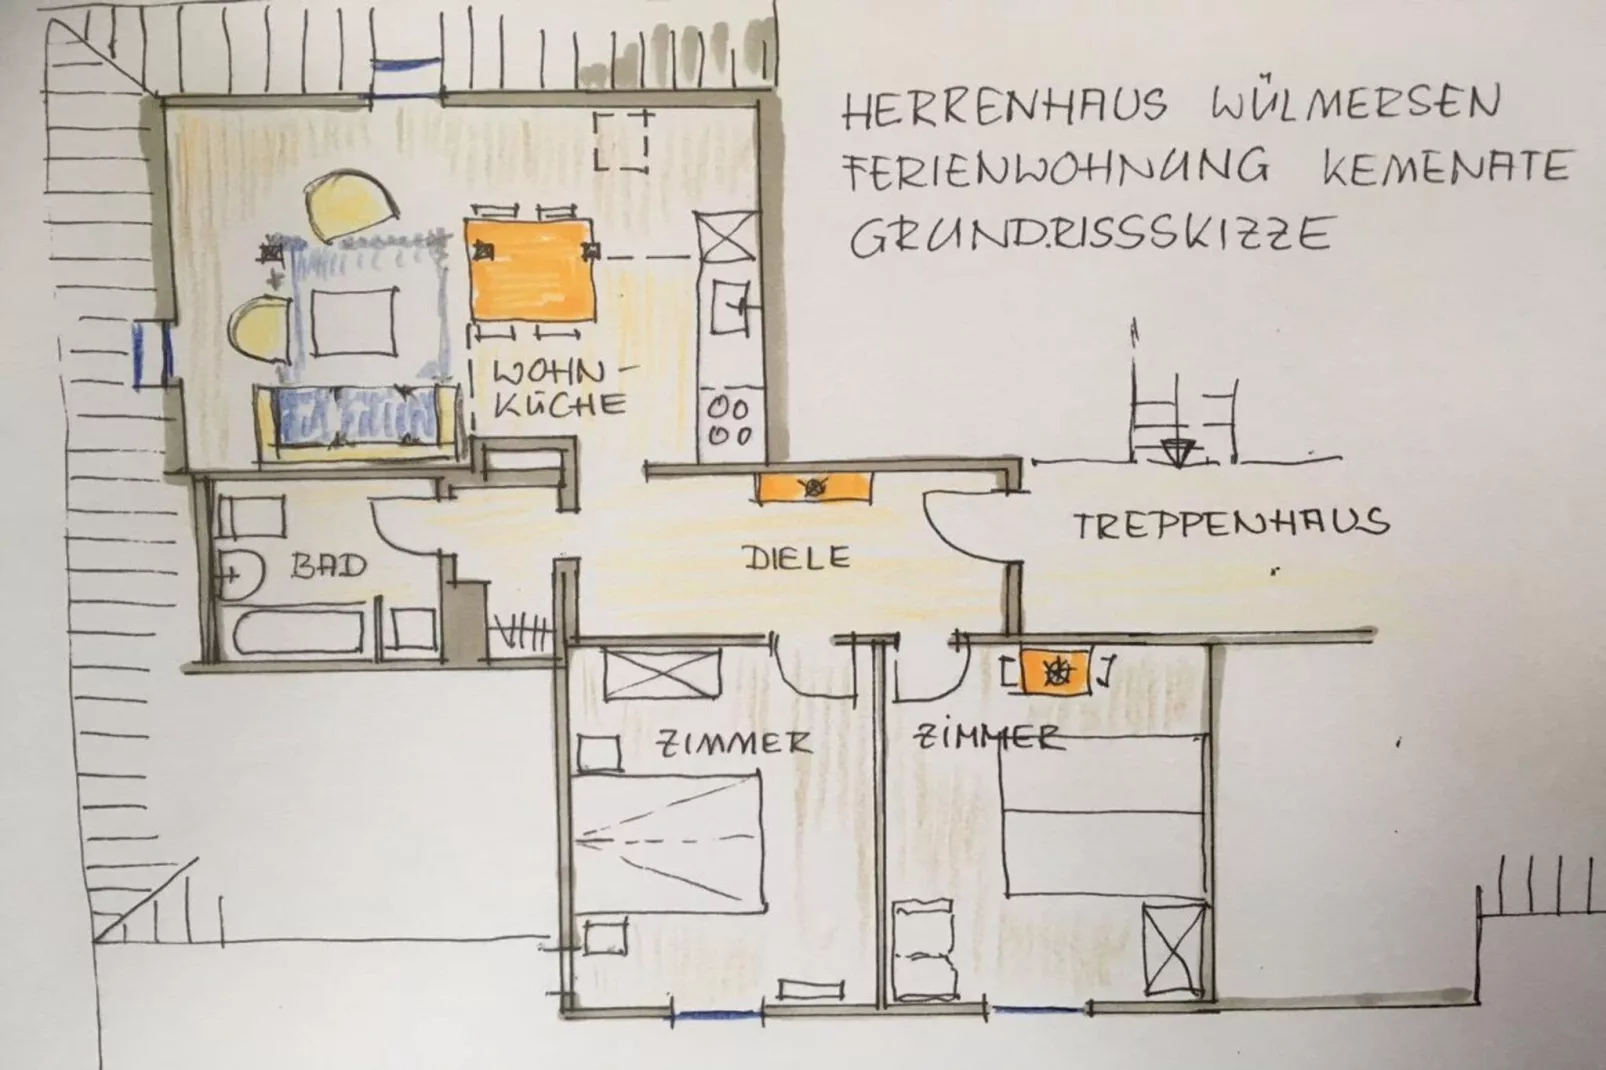 HERRENHAUS WÜLMERSEN
FERIENWOHNUNG KEMENATE
GRUNDRISSSKIZZE
WOHN-
KÜCHE
TREPPENHAUS
BAD
DIELE
ZIMMER
ZIMMER